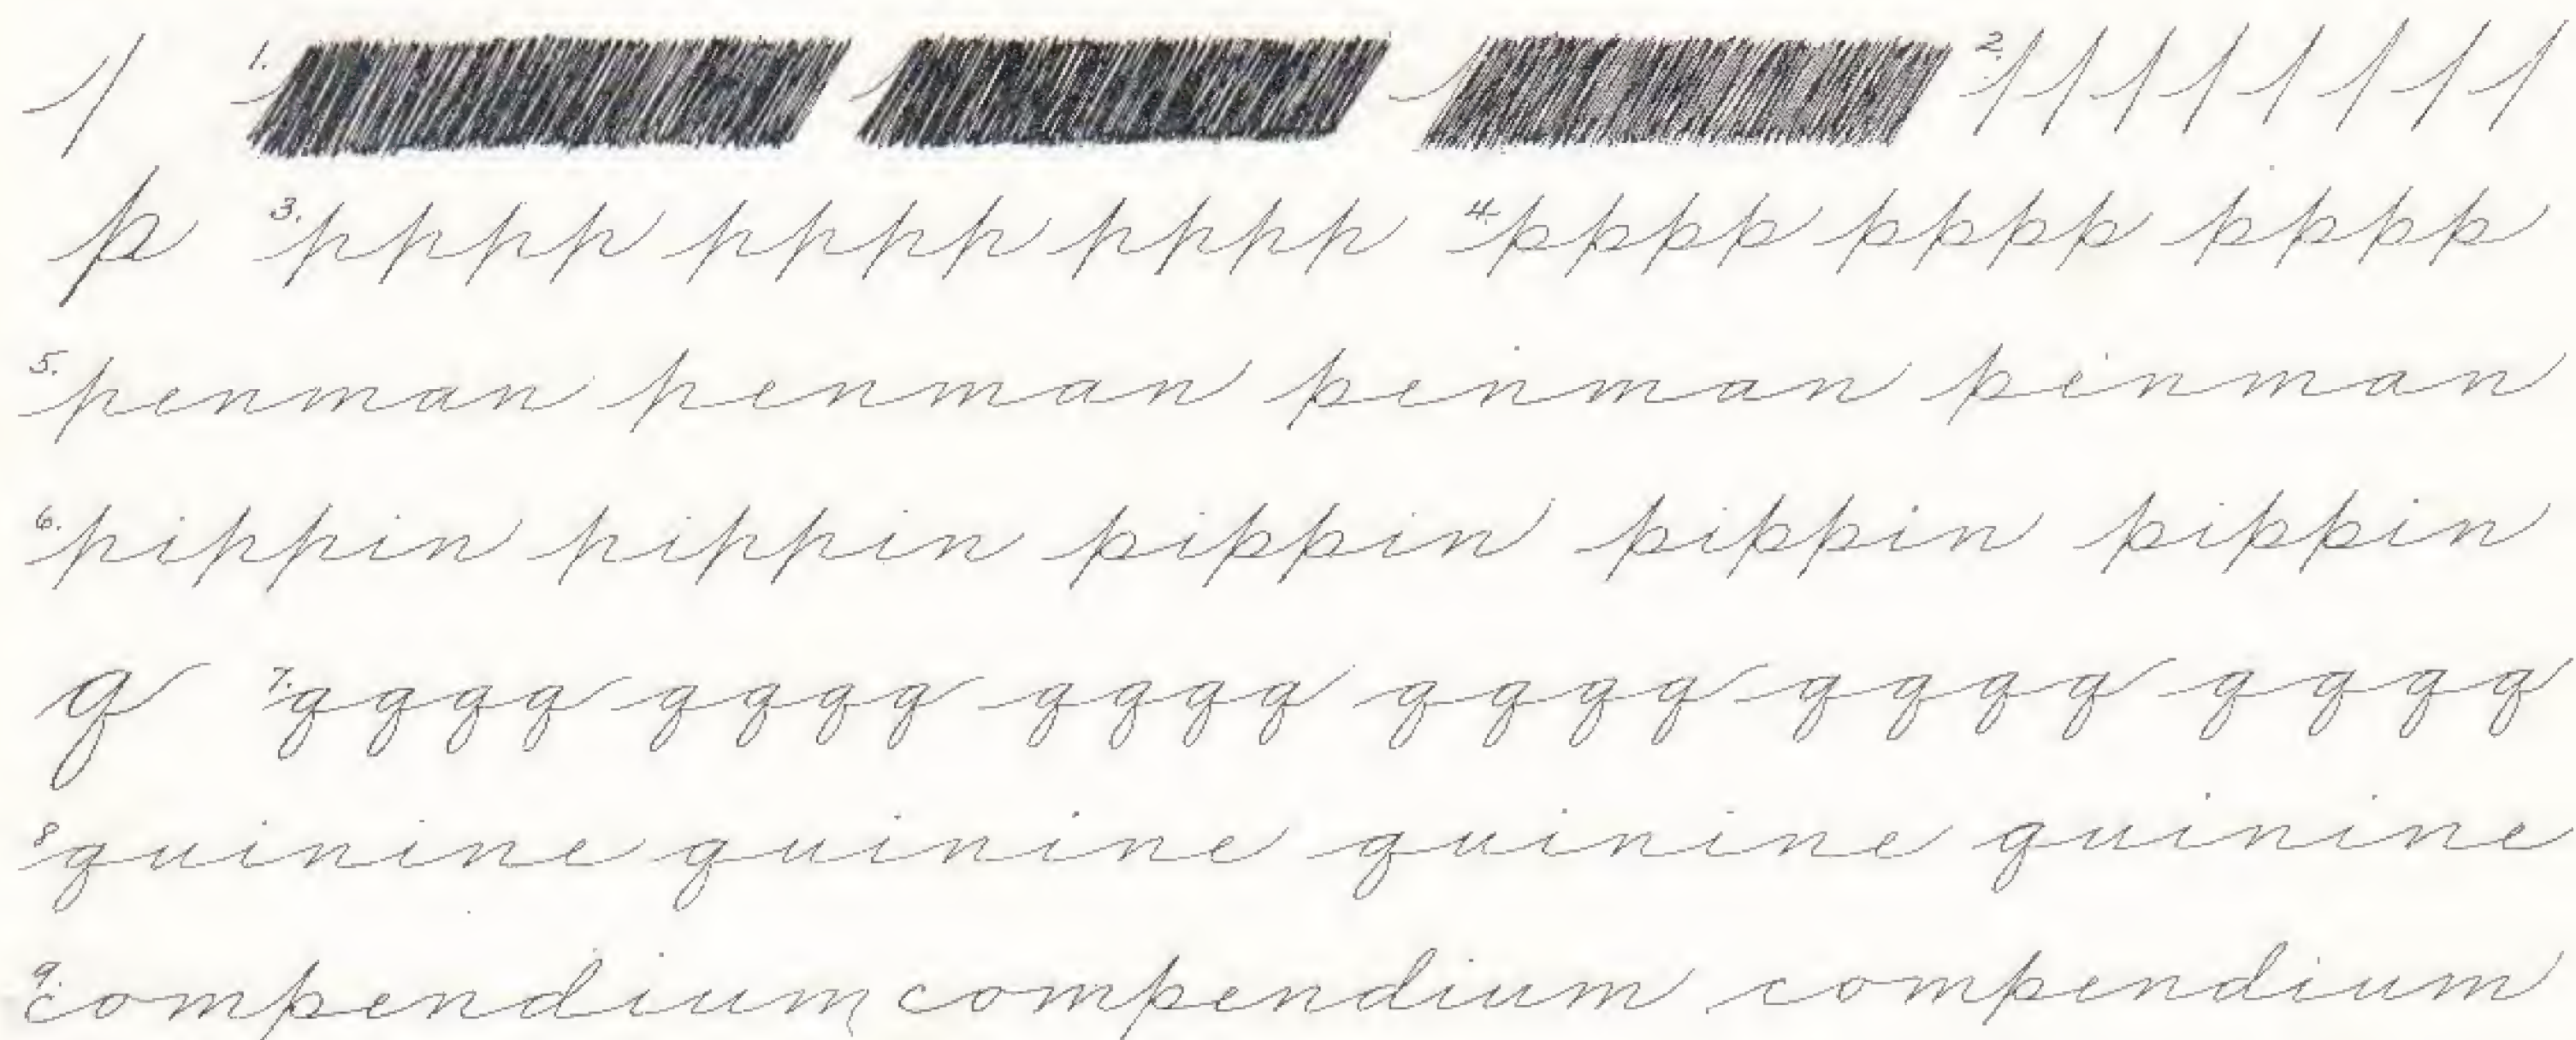 1. 2.
p 3. pppp pppp pppp 4. pppp pppp pppp
5. penman penman penman penman
6. pippin pippin pippin pippin pippin
q 7. qqqq qqqq qqqq qqqq qqqq qqqq
8 quinine quinine quinine quinine
9. compendium compendium compendium